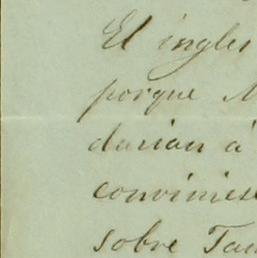 El ingles
porque
darian á
conviniese
sobre